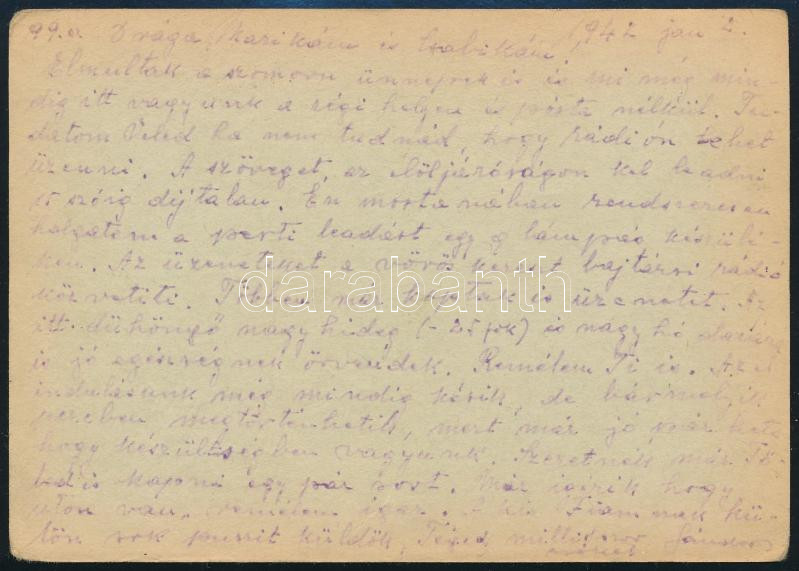 99.a. Drága Marikám és Csabikám, 1942 jan 2.
Elmultak a szomoru ünnepek is és mi még min-
dig itt vagyunk a régi helyen és posta nélkül. Tu-
datom Veled ha nem tudnád, hogy rádión lehet
üzenni. A szöveget, az elöljáróságon kel leadni
15 szóig dijtalan. En mostanában rendszeresen
halgatom a pesti leadást egy 9 lámpás készülé-
ken. Az üzeneteket a vörös kereszt bajtársi rádió
közvetiti. Többen már kaptak is üzenetet. Az
itt dühöngő nagy hideg (-25 fok) és nagy hó
is jó egészségnek örvendek. Remélem Ti is. Az el
indulásunk még mindig késik, de bármelyik
percben megtörténhetik, mert már jó pár hete
hogy készültségben vagyunk. Szeretnék már Tő-
led is kapni egy pár sort. Már igérik hogy
uton van, remélem igaz. A kis Fiamnak kü-
lön sok puszit küldök, Téged milliószor Sándor
darabanth